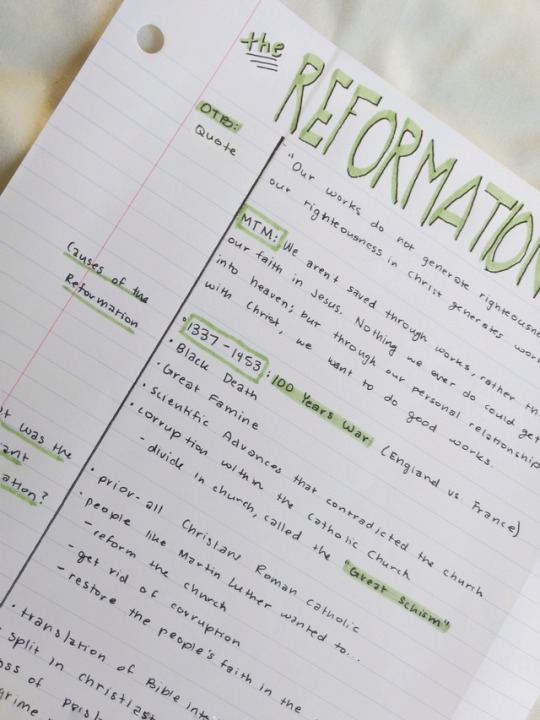 the
REFORMATION
OTB:
Quote
"Our works do not generate
our righteousness in Christ generates
MTM: We aren't saved through works, rather
our faith in Jesus. Nothing we ever do could get
into heaven; but through our personal relationship
with Christ, we want to do good works.
Causes of the
Reformation
• 1337-1453: 100 Years War (England vs. France)
• Black Death
• Great Famine
• Scientific Advances that contradicted the church
• corruption within the Catholic Church
- divide in church, called the "Great Schism"
was the
• prior-all Christian Roman Catholic
• people like Martin Luther wanted to...
- reform the church
- get rid of corruption
- restore the people's faith in the
• translation of Bible
• split in
of